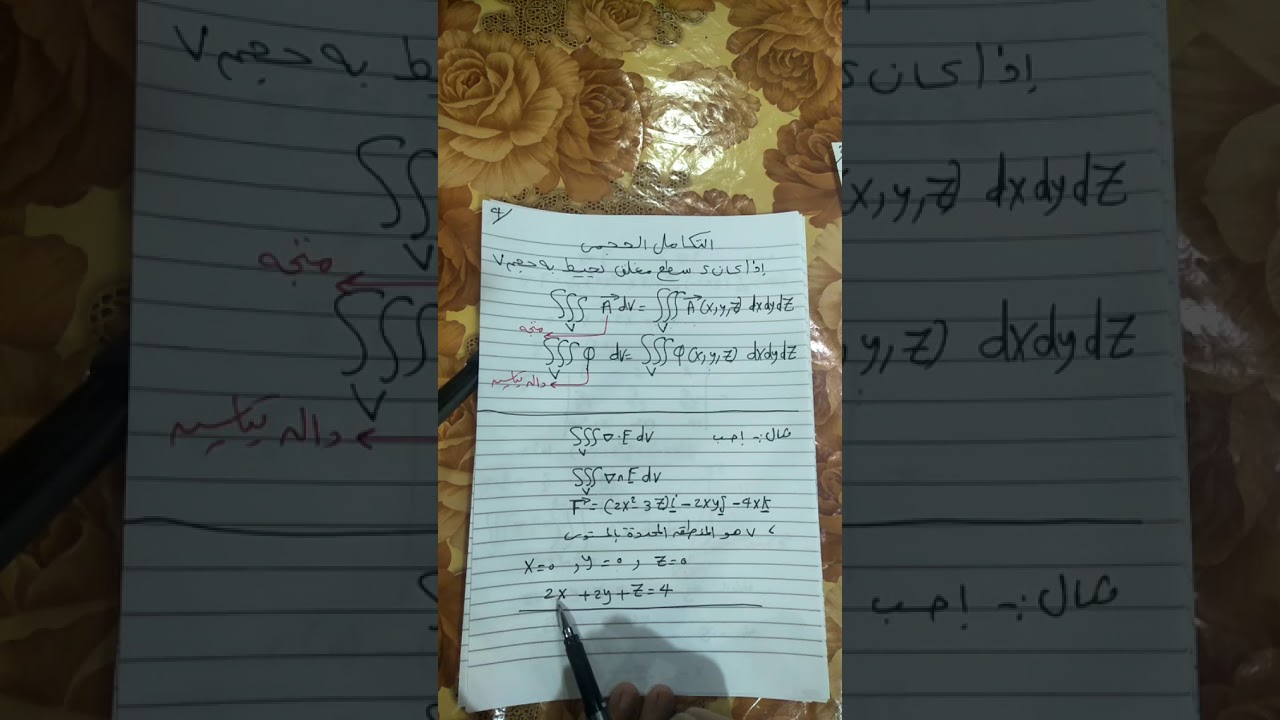 4/
التكامل الحجمي
إذا كان s سطح مغلق تحيط به حجم V
∭_V A⃗ dv = ∭_V A⃗ (x,y,z) dxdydz
متجه
∭_V φ dv = ∭_V φ(x,y,z) dxdydz
داله قياسيه
مثال :- احسب ∭_V ∇·F dv
∭_V ∇∧F dv
F⃗ = (2x² - 3z)i - 2xyj - 4xk
V هو المنطقه المحددة بالمستوى
x=0 , y=0 , z=0
2x + 2y + z = 4